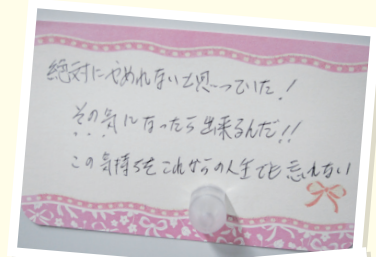 絶対にやめれないと思っていた！
その気になったら出来るんだ！！
この気持ちをこれからの人生でも忘れない